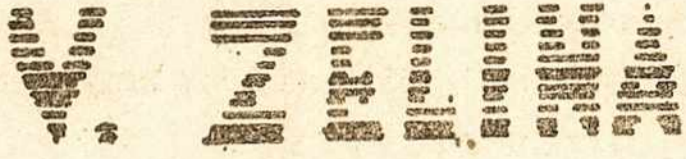 V. ZELINA